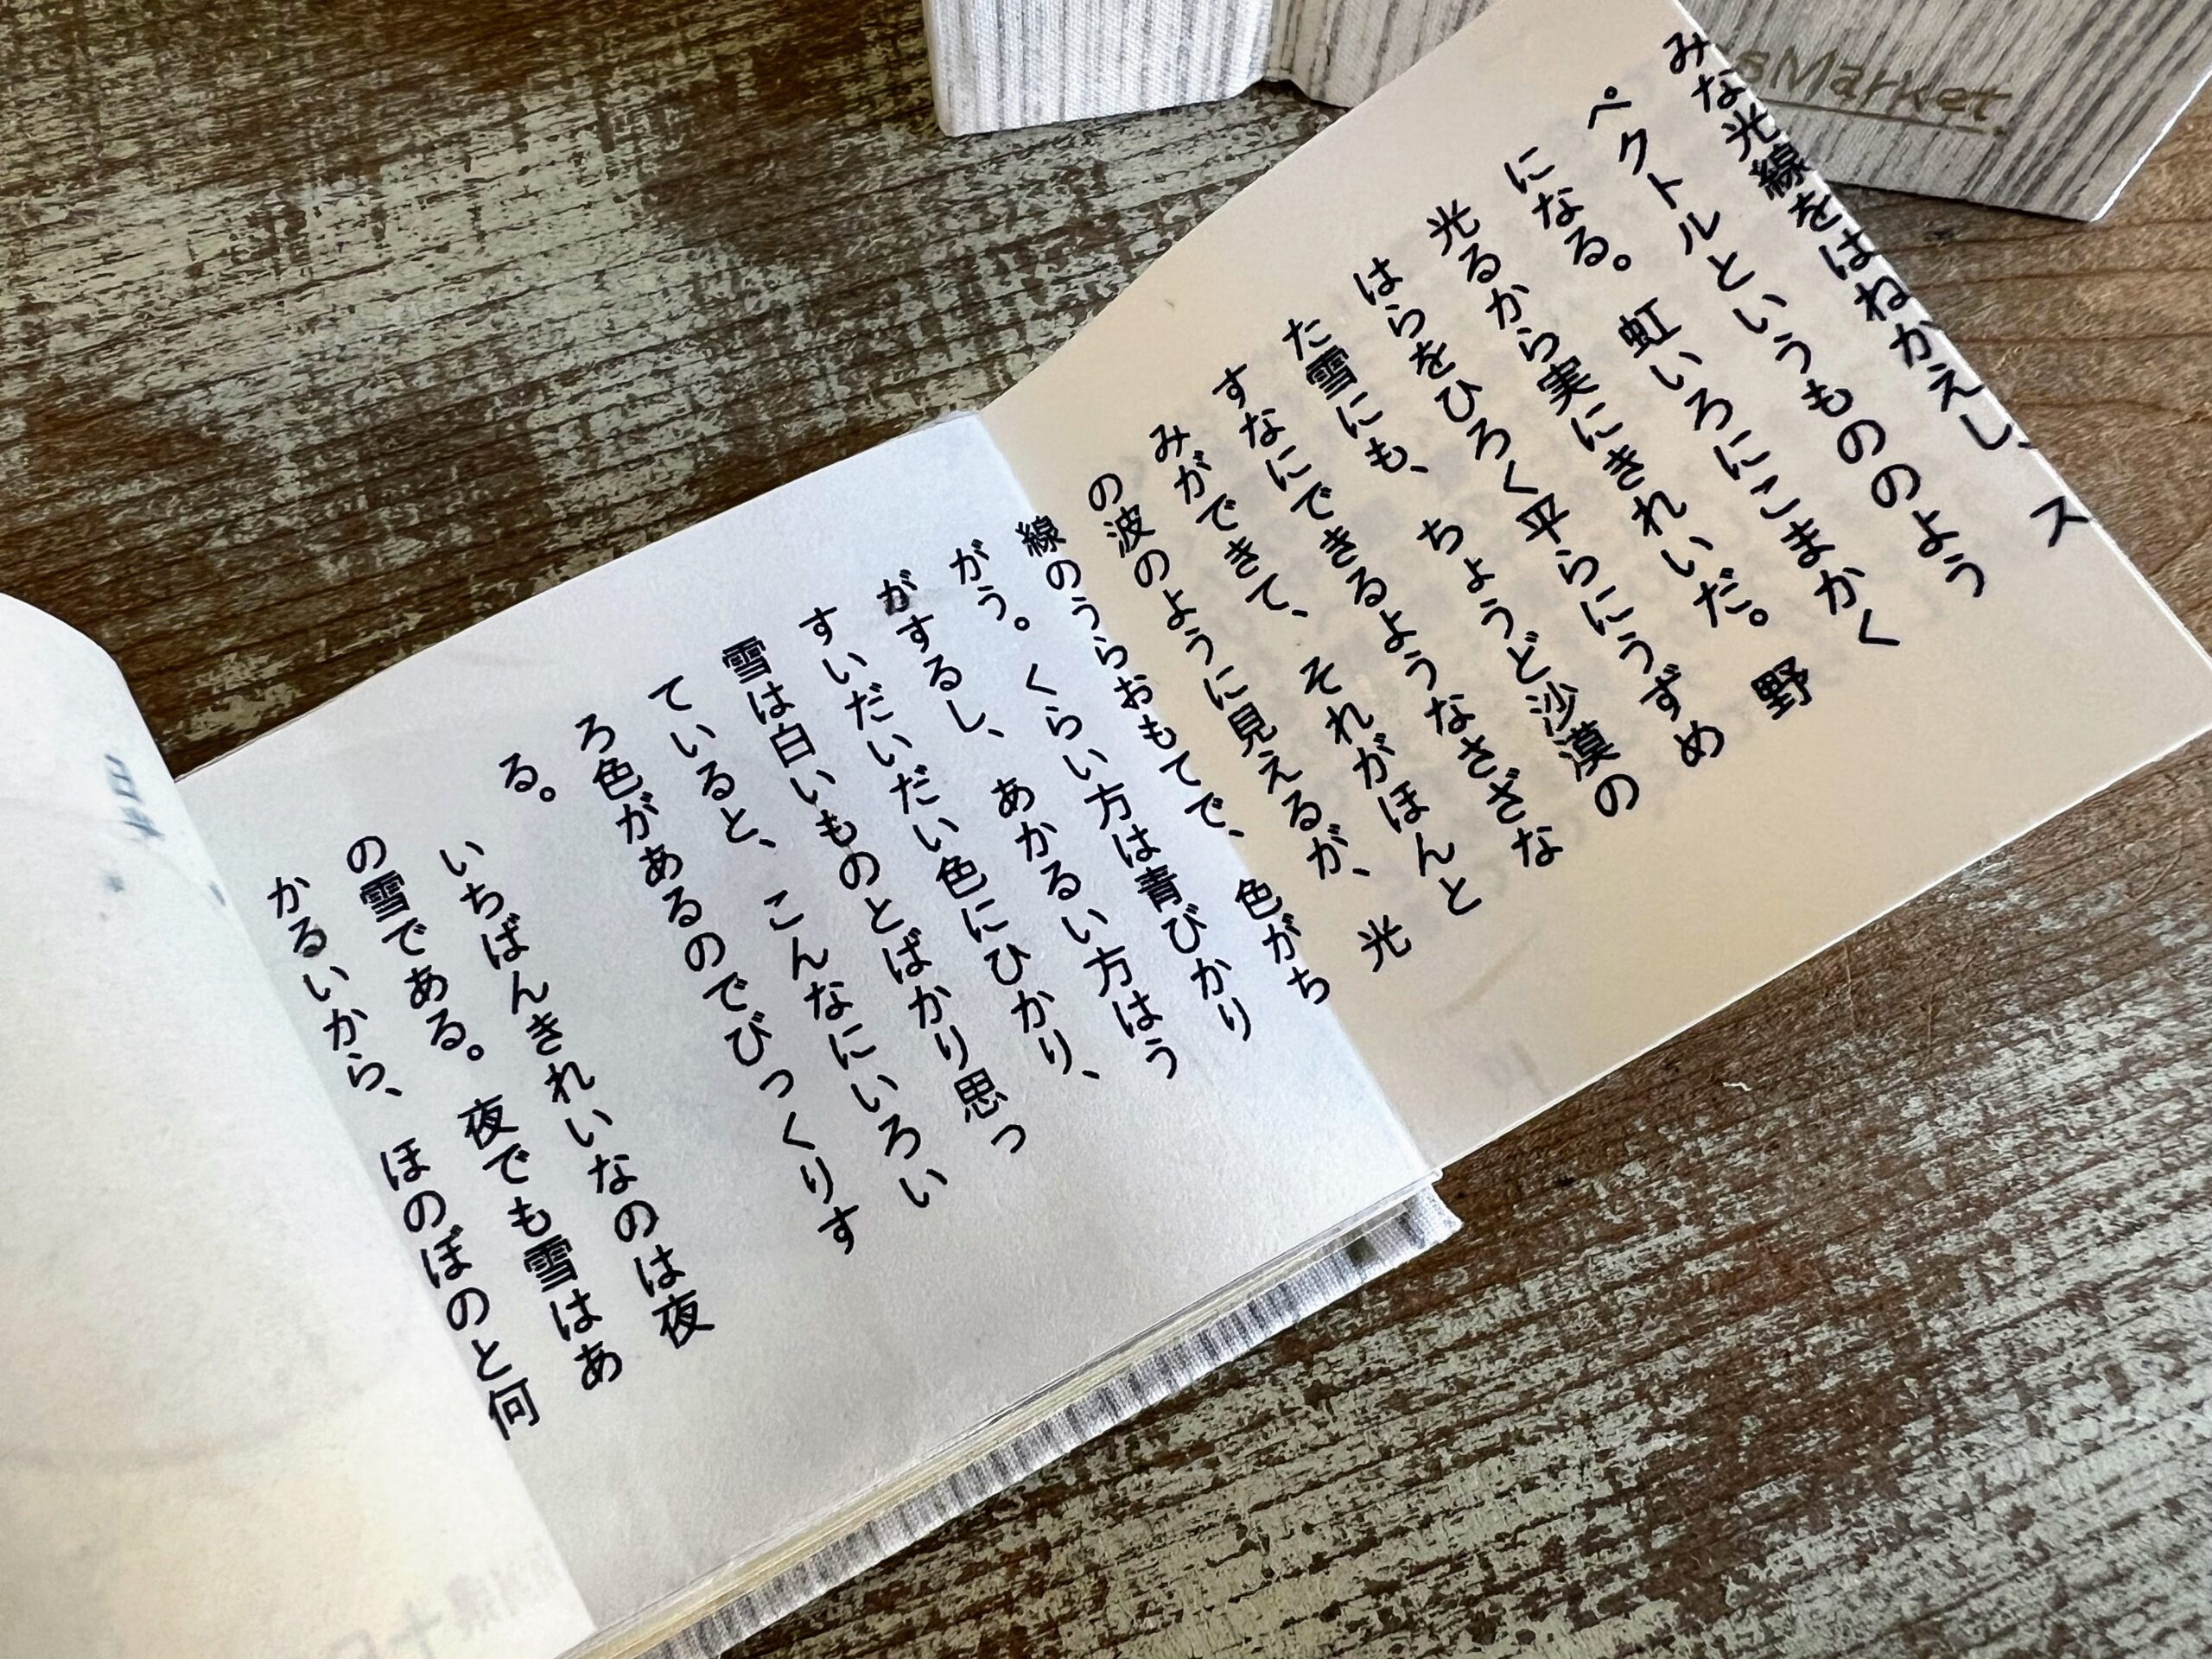 みな光線をはねかえし、ス
ペクトルというもののよう
になる。虹いろにこまかく
光るから実にきれいだ。野
はらをひろく平らにうずめ
た雪にも、ちょうど沙漠の
すなにできるようなさざな
みができて、それがほんと
の波のように見えるが、光
線のうらおもてで、色がち
がう。くらい方は青びかり
がするし、あかるい方はう
すいだいだい色にひかり、
雪は白いものとばかり思っ
ていると、こんなにいろい
ろ色があるのでびっくりす
る。
いちばんきれいなのは夜
の雪である。夜でも雪はあ
かるいから、ほのぼのと何
sMarket